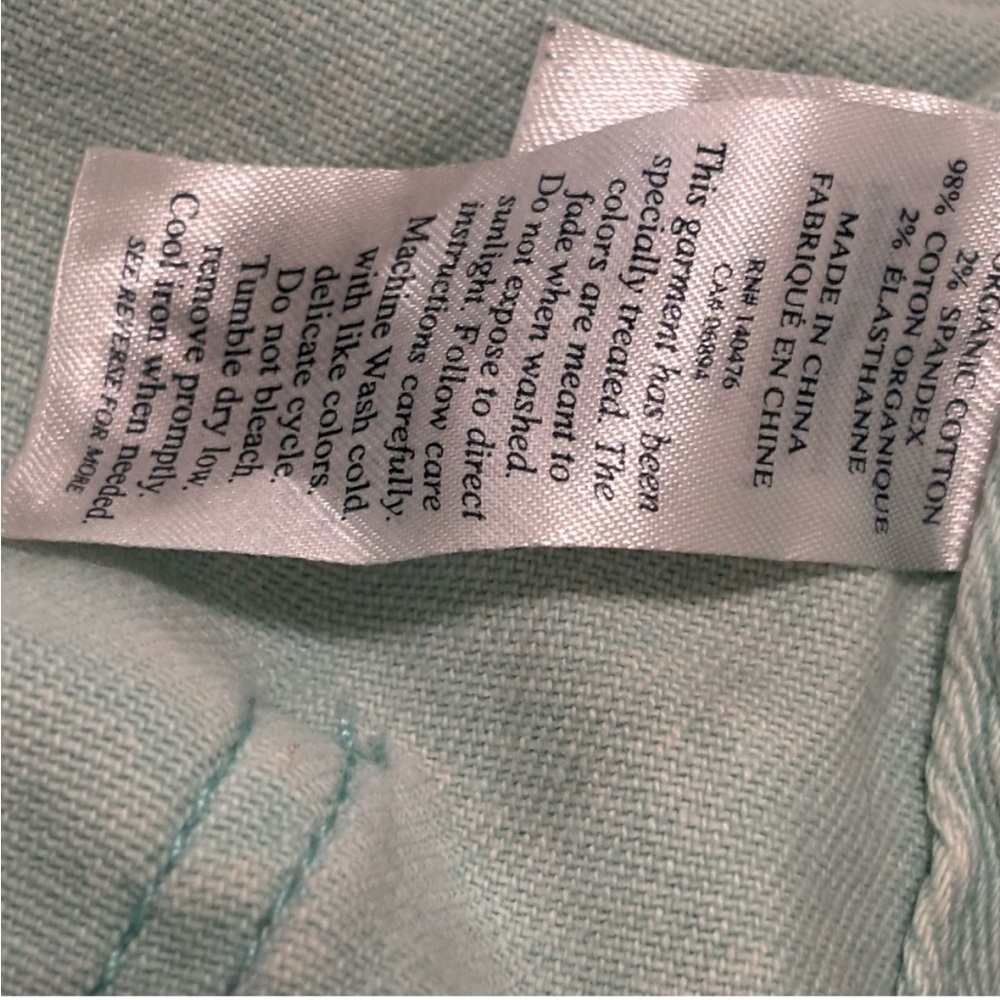 ORGANIC COTTON
2% SPANDEX
98% COTON ORGANIQUE
2% ÉLASTHANNE
MADE IN CHINA
FABRIQUÉ EN CHINE
RN# 140476
CA#
This garment has been
specially treated. The
colors are meant to
fade when washed.
Do not expose to direct
sunlight. Follow care
instructions carefully.
Machine Wash cold
with like colors.
delicate cycle.
Do not bleach.
Tumble dry low.
remove promptly.
Cool iron when needed.
SEE REVERSE FOR MORE